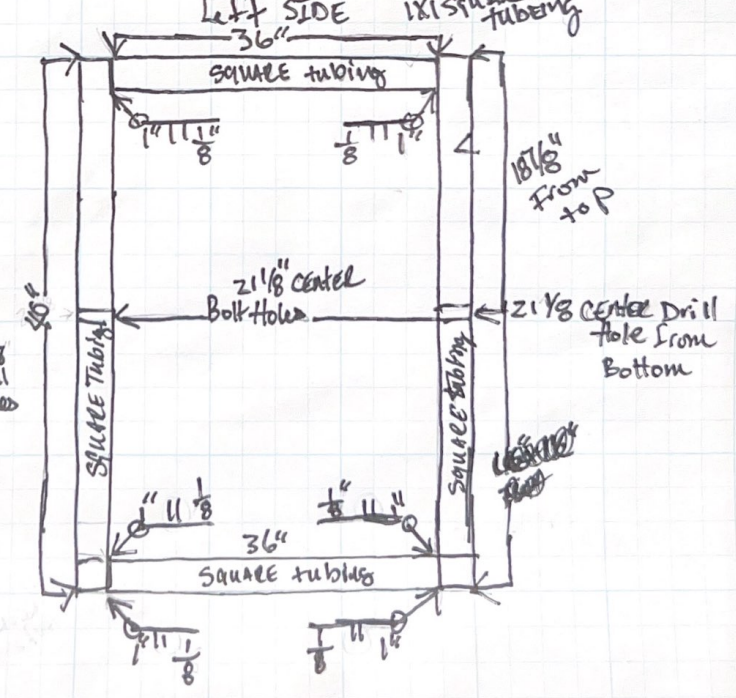 Left SIDE
1X1 Square
tubeing
36"
SQUARE tubing
1" || 1/8"
1/8 || 1"
18 7/8"
From
top
21 1/8" CENter
Bolt Holes
21 1/8 CENter Drill
Hole From
Bottom
40"
SQUARE Tubing
SQUARE tubing
1" || 1/8
1/8" || 1"
36"
SQUARE tubing
1" || 1/8
1/8 || 1"